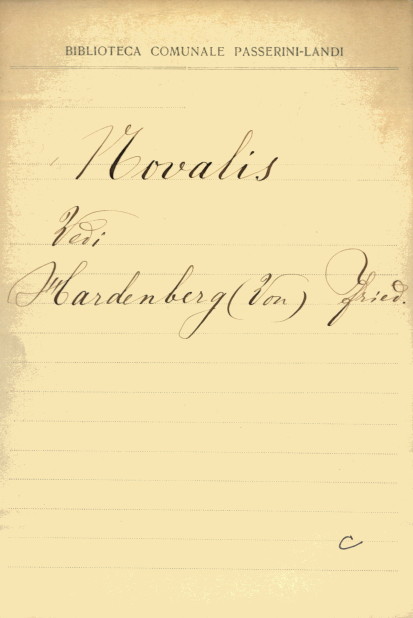 BIBLIOTECA COMUNALE PASSERINI-LANDI
Novalis
Vedi
Hardenberg (Von) Fried.
c